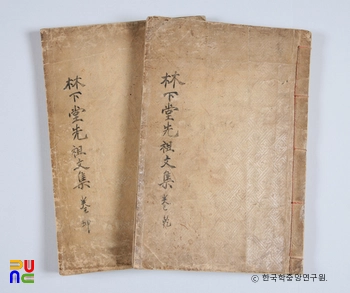 林下堂先祖文集
林下堂先祖文集 卷之乾
PUNC
© 한국학중앙연구원